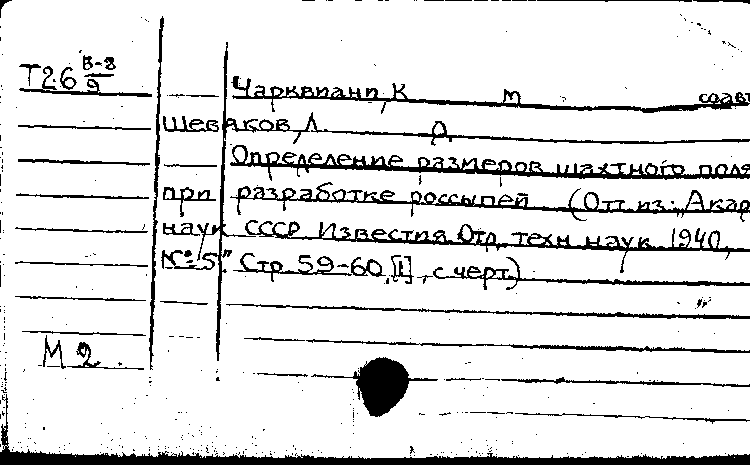 Т26 В-8/9
Чарквиани, К м соавт
Шевяков, Л. Д
Определение размеров шахтного поля
при разработке россыпей (Отт. из: „Акад
наук СССР Известия Отд. техн. наук 1940,
№ 5." Стр 59-60, [1], с черт.)
М 2.